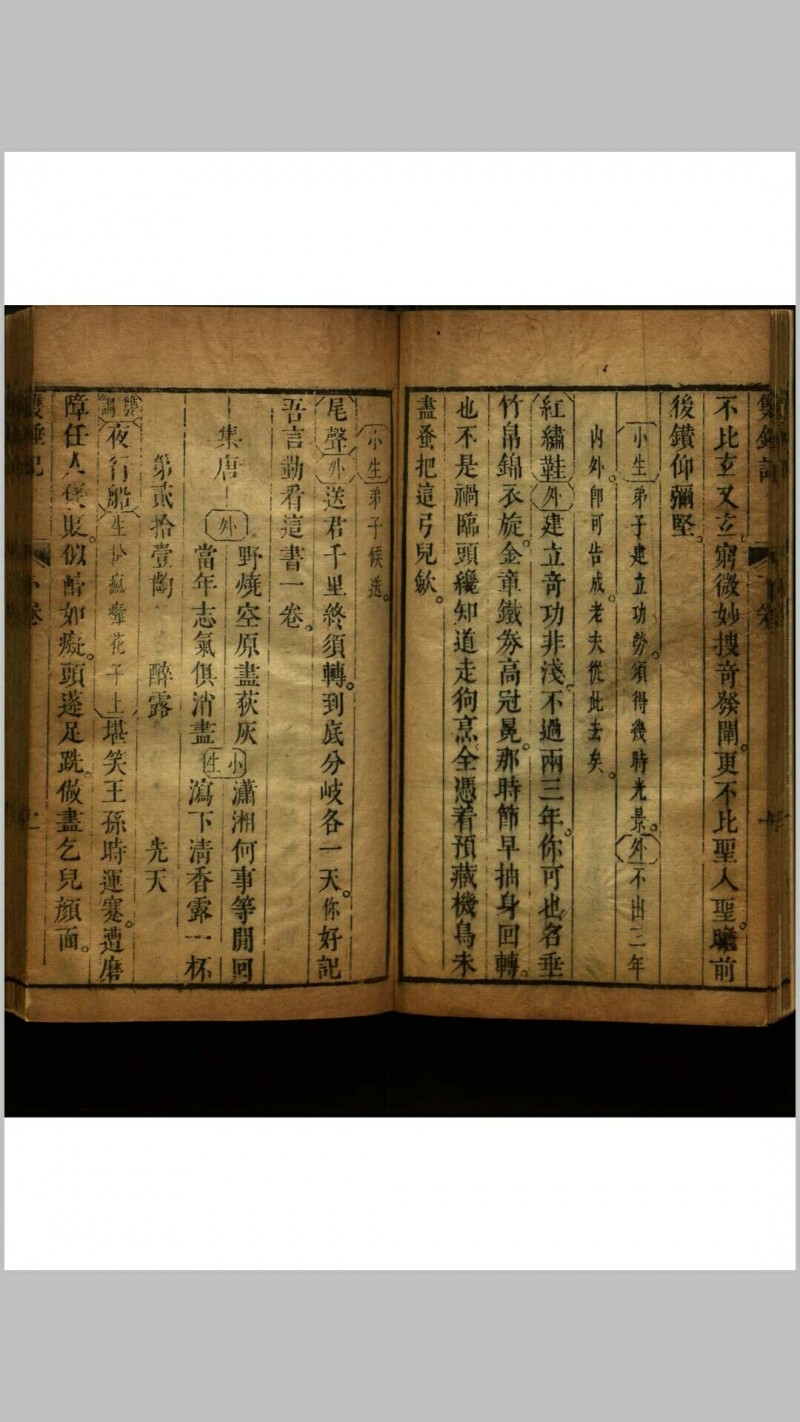 不比玄又玄。窮微妙搜奇發闡。更不比聖人聖。瞻前
後鑽仰彌堅。
小生弟子建立功勞。須得幾時光景。外不出三年
內外。卽可告成。老夫從此去矣。
紅繡鞋外建立奇功非淺。不過兩三年。你可也名垂
竹帛錦衣旋。金章鐵券高冠冕。那時節早抽身回轉。
也不是禍臨頭纔知道走狗烹。全憑着預藏機鳥未
盡蚤把這弓兒
小生弟子候送。
尾聲外送君千里終須轉。到底分岐各一天。你好記
吾言勤看這書一卷。
集唐
外野燒空原盡荻灰
小生瀟湘何事等閒回
當年志氣俱消盡
瀉下清香露一杯
第貳拾壹齣 醉露 先天
夜行船生扮瘋癱花子上堪笑王孫時運蹇。遭磨
障任人 賬。似醉如癡。頭蓬足跣。做盡乞兒顏面。